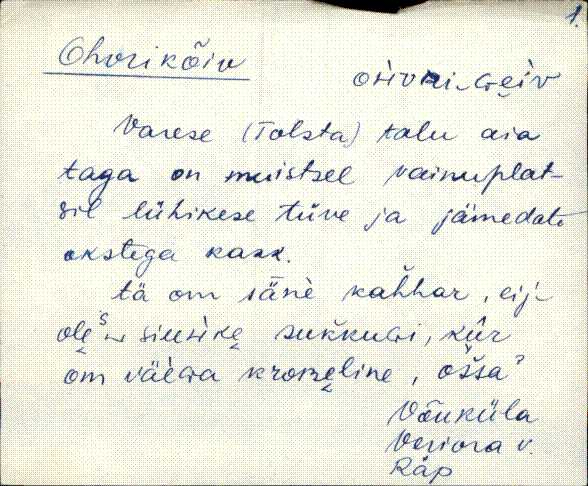 1.
Ohvrikõiv
Varese (Tolsta) talu aia
taga on muistsel vainuplat-
sil lühikese tüve ja jämedate
okstega kask.
tä om säne kahhar, eij
om väega kromeline, ossa
Võuküla
Veriora v.
Räp